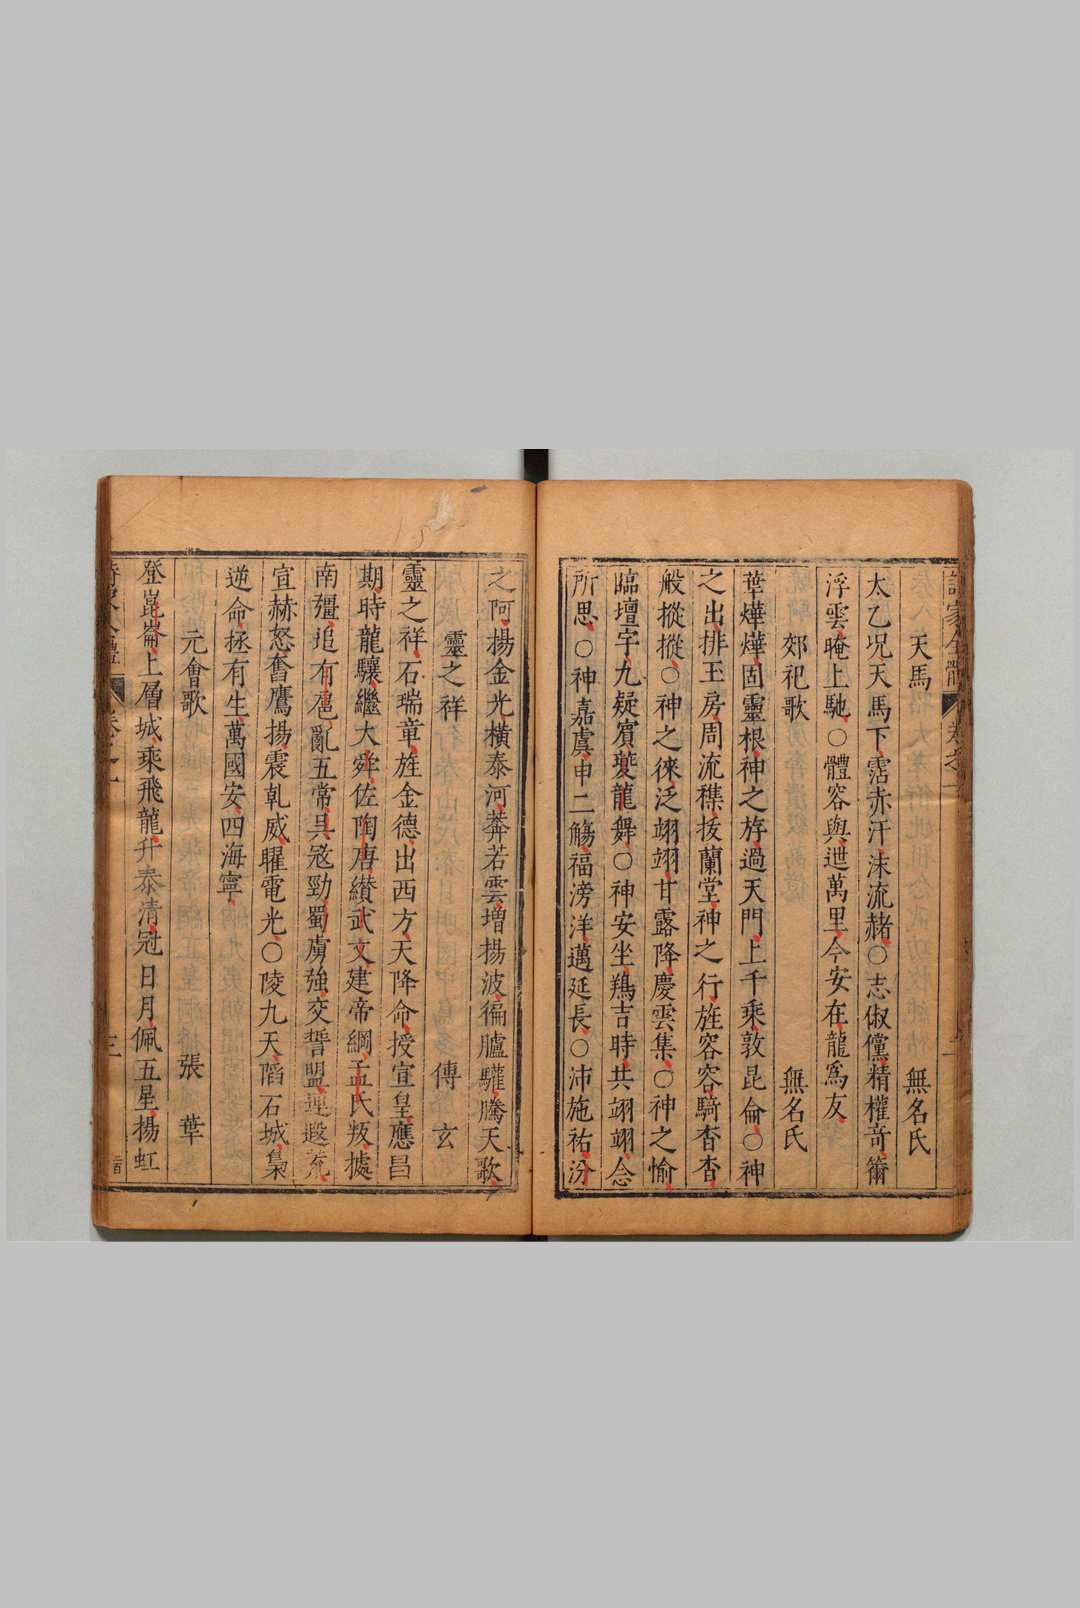 天馬　無名氏
太乙况天馬下霑赤汗沫流赭〇志俶儻精權竒籋
浮雲晻上馳〇體容與迣萬里今安在龍爲友
郊祀歌　無名氏
華燁燁固靈根神之斿過天門上千乘敦昆侖〇神
之出排玉房周流襍拔蘭堂神之行旌容容騎沓沓
般摐摐〇神之徠泛翊翊甘露降慶雲集〇神之愉
臨壇宇九疑賓夔龍舞〇神安坐鴹吉時共翊翊合
所思〇神嘉虞申二觴福滂洋邁延長〇沛施祐汾
之阿揚金光橫泰河莾若雲增揚波徧臚驩騰天歌
靈之祥　傅玄
靈之祥石瑞章旌金德出西方天降命授宣皇應昌
期時龍驤繼大舜佐陶唐纉武文建帝綱孟氏叛據
南疆追有扈亂五常吳冦勁蜀虜強交誓盟連遐荒
宣赫怒奮鷹揚震乹威曜電光〇陵九天陷石城梟
逆命拯有生萬國安四海寧
元會歌　張華
登崑崙上層城乘飛龍升泰清冠日月佩五星揚虹
卷之一
三